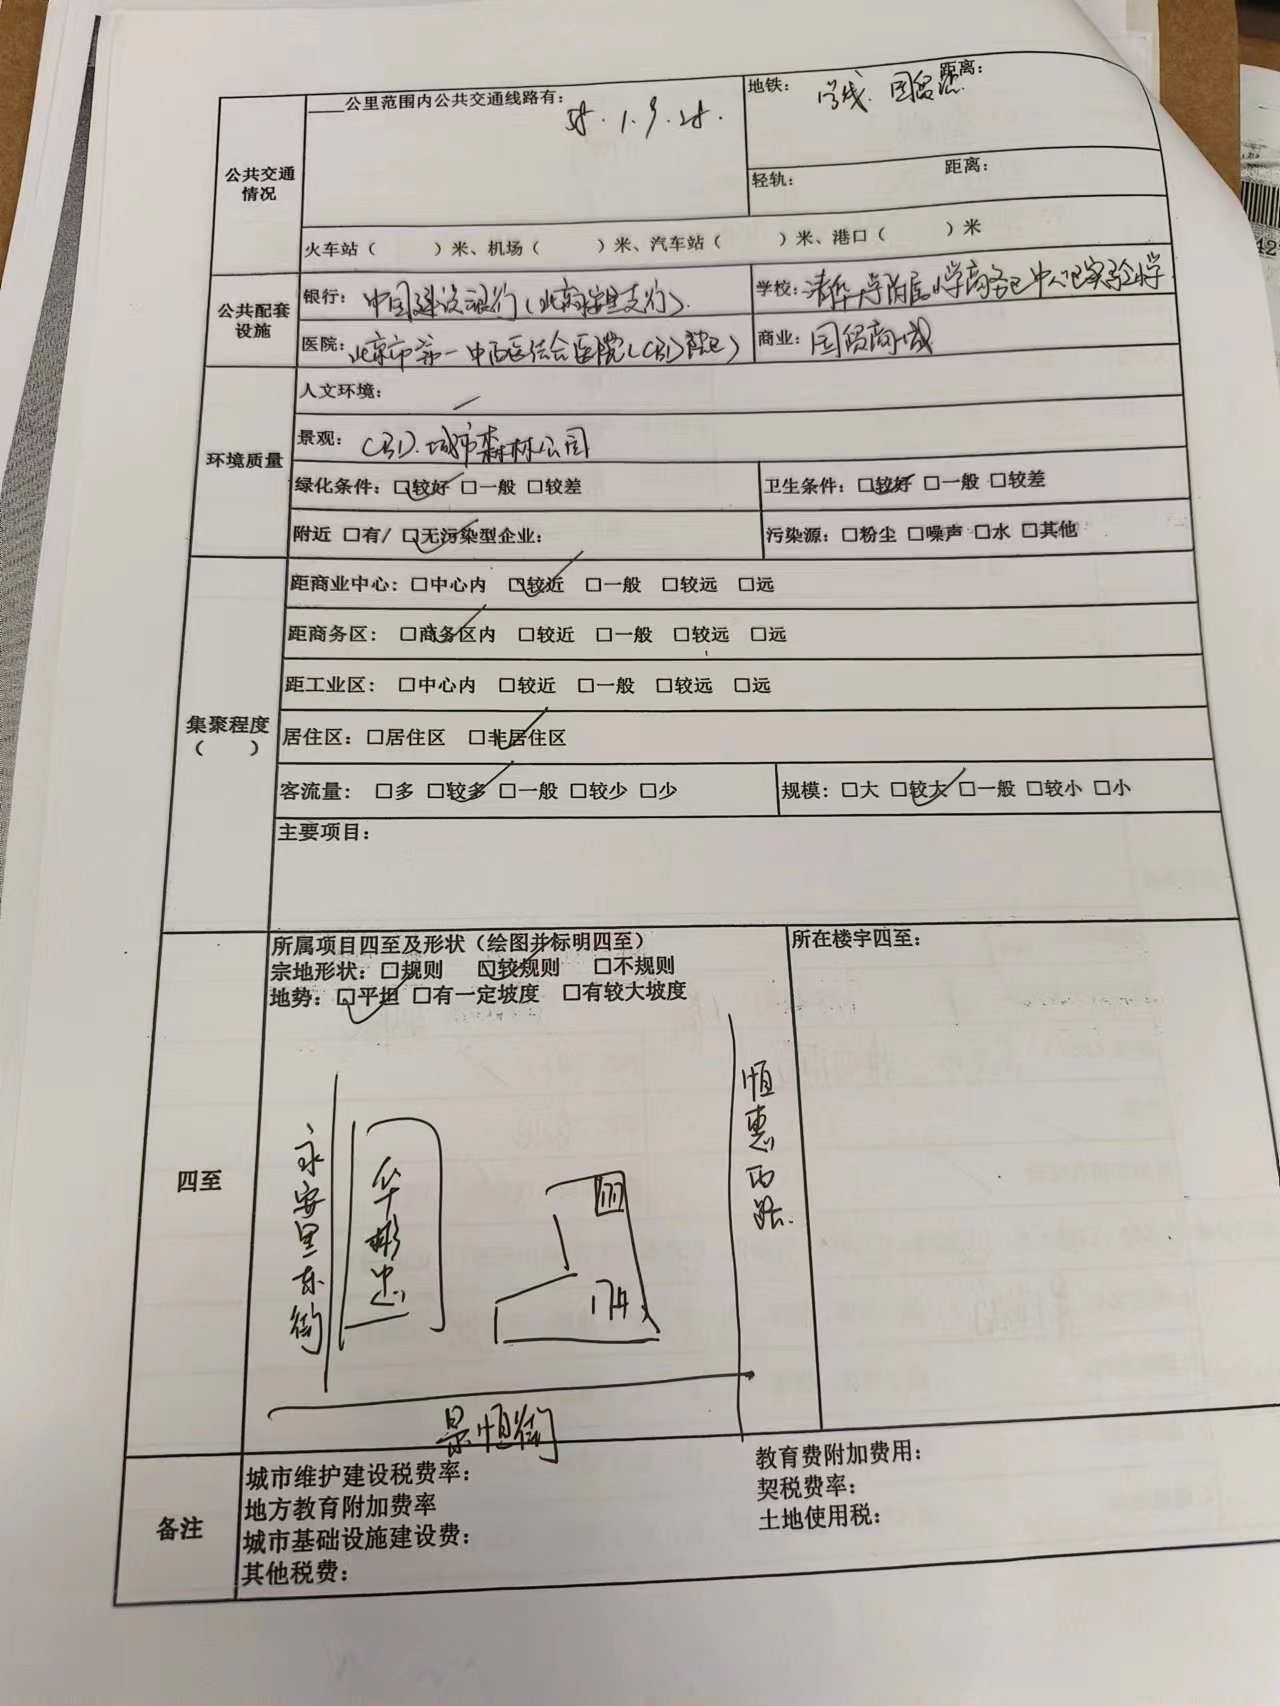 公共交通情况
____公里范围内公共交通线路有:
地铁: 号线. 国贸 距离:
轻轨: 距离:
火车站（ ）米、机场（ ）米、汽车站（ ）米、港口（ ）米
公共配套设施
银行: 中国建设银行(北京 支行).
学校: 清华大学附属小学商务中心区实验小学
医院: 北京市第一中西医结合医院(CBD院区)
商业: 国贸商城
环境质量
人文环境:
景观: CBD.城市森林公园
绿化条件: □较好 □一般 □较差
卫生条件: □较好 □一般 □较差
附近 □有/ □无污染型企业:
污染源: □粉尘 □噪声 □水 □其他
集聚程度
（ ）
距商业中心: □中心内 □较近 □一般 □较远 □远
距商务区: □商务区内 □较近 □一般 □较远 □远
距工业区: □中心内 □较近 □一般 □较远 □远
居住区: □居住区 □非居住区
客流量: □多 □较多 □一般 □较少 □少
规模: □大 □较大 □一般 □较小 □小
主要项目:
四至
所属项目四至及形状（绘图并标明四至）
宗地形状: □规则 □较规则 □不规则
地势: □平坦 □有一定坡度 □有较大坡度
所在楼宇四至:
永安里东街
华彬
恒惠西路.
景恒街
备注
城市维护建设税费率:
地方教育附加费率
城市基础设施建设费:
其他税费:
教育费附加费用:
契税费率:
土地使用税: